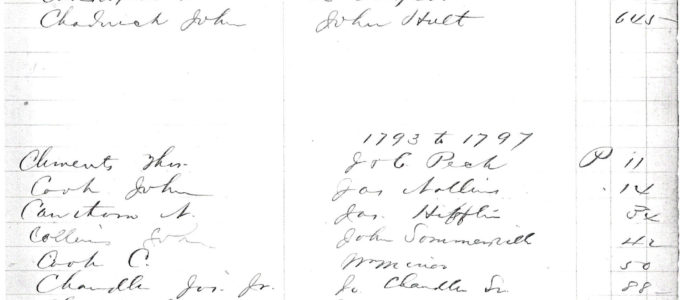 Chadwick John John Hult 645
1793 to 1797
Clements Thos. J & C Peck P 11
Cook John Jas Nollins 14
Cawthorn A. Jas. Hifflin 34
Collins John John Sommervill 42
Cook C. Wm Minor 50
Chandler Jos. Jr. Jo Chandler Sr. 88